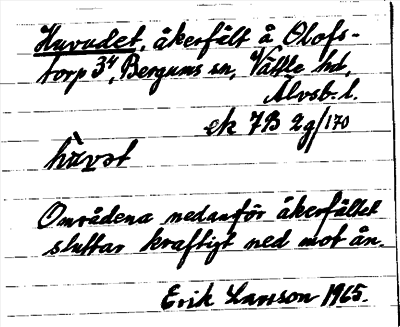 Huvudet, åkerfält å Olofs-
torp 3⁴, Bergums sn, Vättle hd,
Älvsb. l.
ek 7B 2g/170
hùvət
Områdena nedanför åkerfältet
sluttar kraftigt ned mot ån.
Erik Larsson 1965.